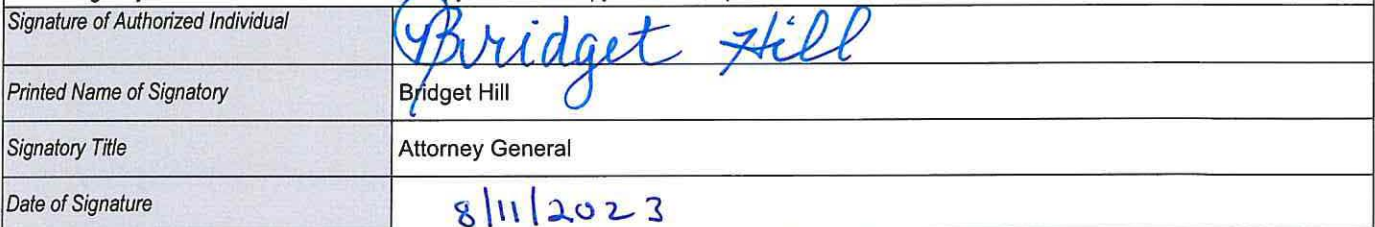 Signature of Authorized Individual
Bridget Hill
Printed Name of Signatory
Bridget Hill
Signatory Title
Attorney General
Date of Signature
8/11/2023